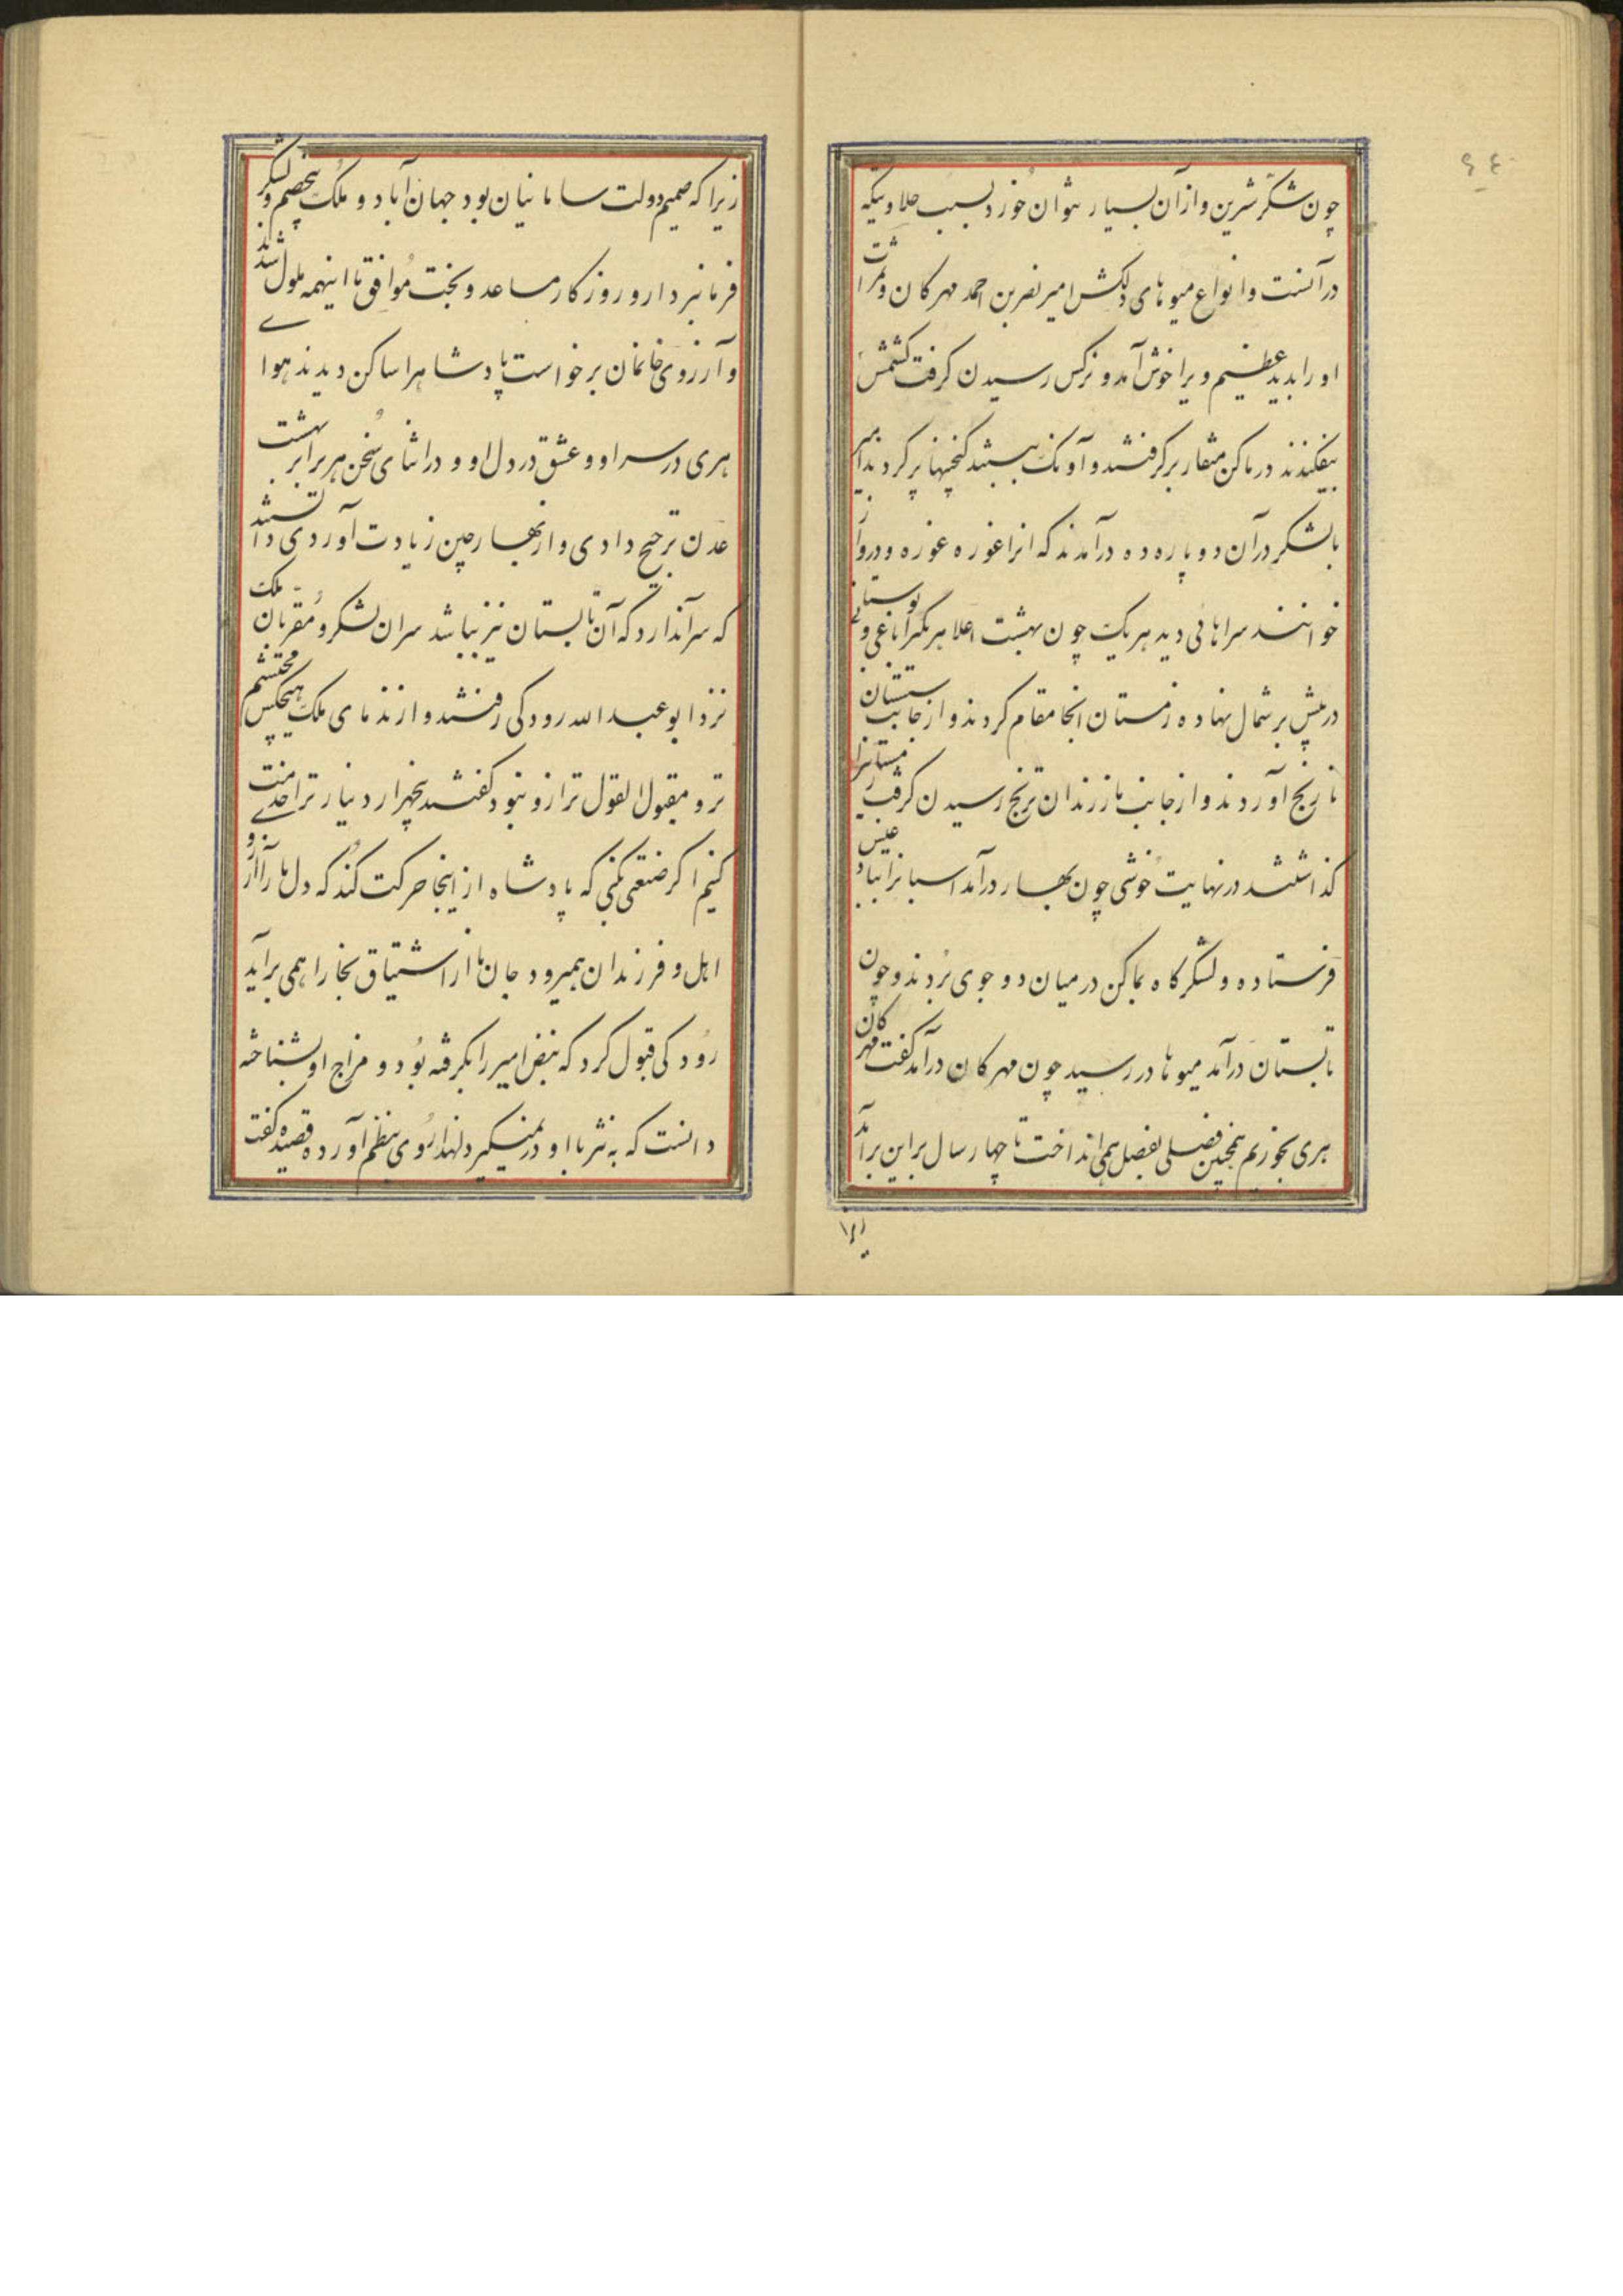 چون شکر شیرین و ازآن بسیار نتوان خورد بسبب حلاوتیکه
درآنست و انواع میوهای دلکش امیر نصر بن احمد مهرکان و ثمرات
او را بدید عظیم ویرا خوش آمد و نرکس رسیدن کرفت کشمش
بیفکندند در مالن منقا بر کرفتند و آونک ببستند کنجینها پر کردند امیر
بالشکر درآن دو پاره ده درآمدند که انرا غوره غوره و درواز
خوانند سراهائی دید هر یک چون بهشت اعلا هر یکیرا باغی و بوستانی
در پیش بر شمال نهاده زمستان انجا مقام کردند و از جانب سیستان
نارنج آوردند و از جانب مازندران ترنج رسیدن کرفت زمستانرا
کذاشتند در نهایت خوشی چون بهار درآمد اسبانرا ببادغیس
فرستاده و لشکرکاه بمالن در میان دو جوی بردند و چون
تابستان درآمد میوها در رسید چون مهرکان درآمد کفت مهرکان
هری بخوریم همچنین فصلی بفصل همی انداخت تا چهار سال براین برآمد
زیرا که صمیم دولت سامانیان بود جهان آباد و ملک بیخصم و لشکر
فرمانبردار و روزکار مساعد و بخت موافق با اینهمه ملول شدند
و آرزوی خانمان برخواست پادشاه را ساکن دیدند هوای
هری در سر او و عشق در دل او و در اثنای سخن هر برابر بهشت
عدن ترجیح دادی و از بهار چین زیادت آوردی دانستند
که سر آندارد که آن تابستان نیز بباشد سران لشکر و مقربان ملک
نزد ابو عبد الله رودکی رفتند و از ندمای ملک هیچکس محتشم
تر و مقبول القول تر از و نبود کفتند پنجهزار دینار ترا خدمت
کنیم اکر صنعتی بکنی که پادشاه از اینجا حرکت کند که دل ما را آرزوی
اهل و فرزندان همیرود جان ما از اشتیاق بخارا همی براید
رودکی قبول کرد که نبض امیر را بکرفته بود و مزاج او بشناخته
دانست که به نثر با او در نمیکیرد لهذا روی بنظم آورده قصیده کفت